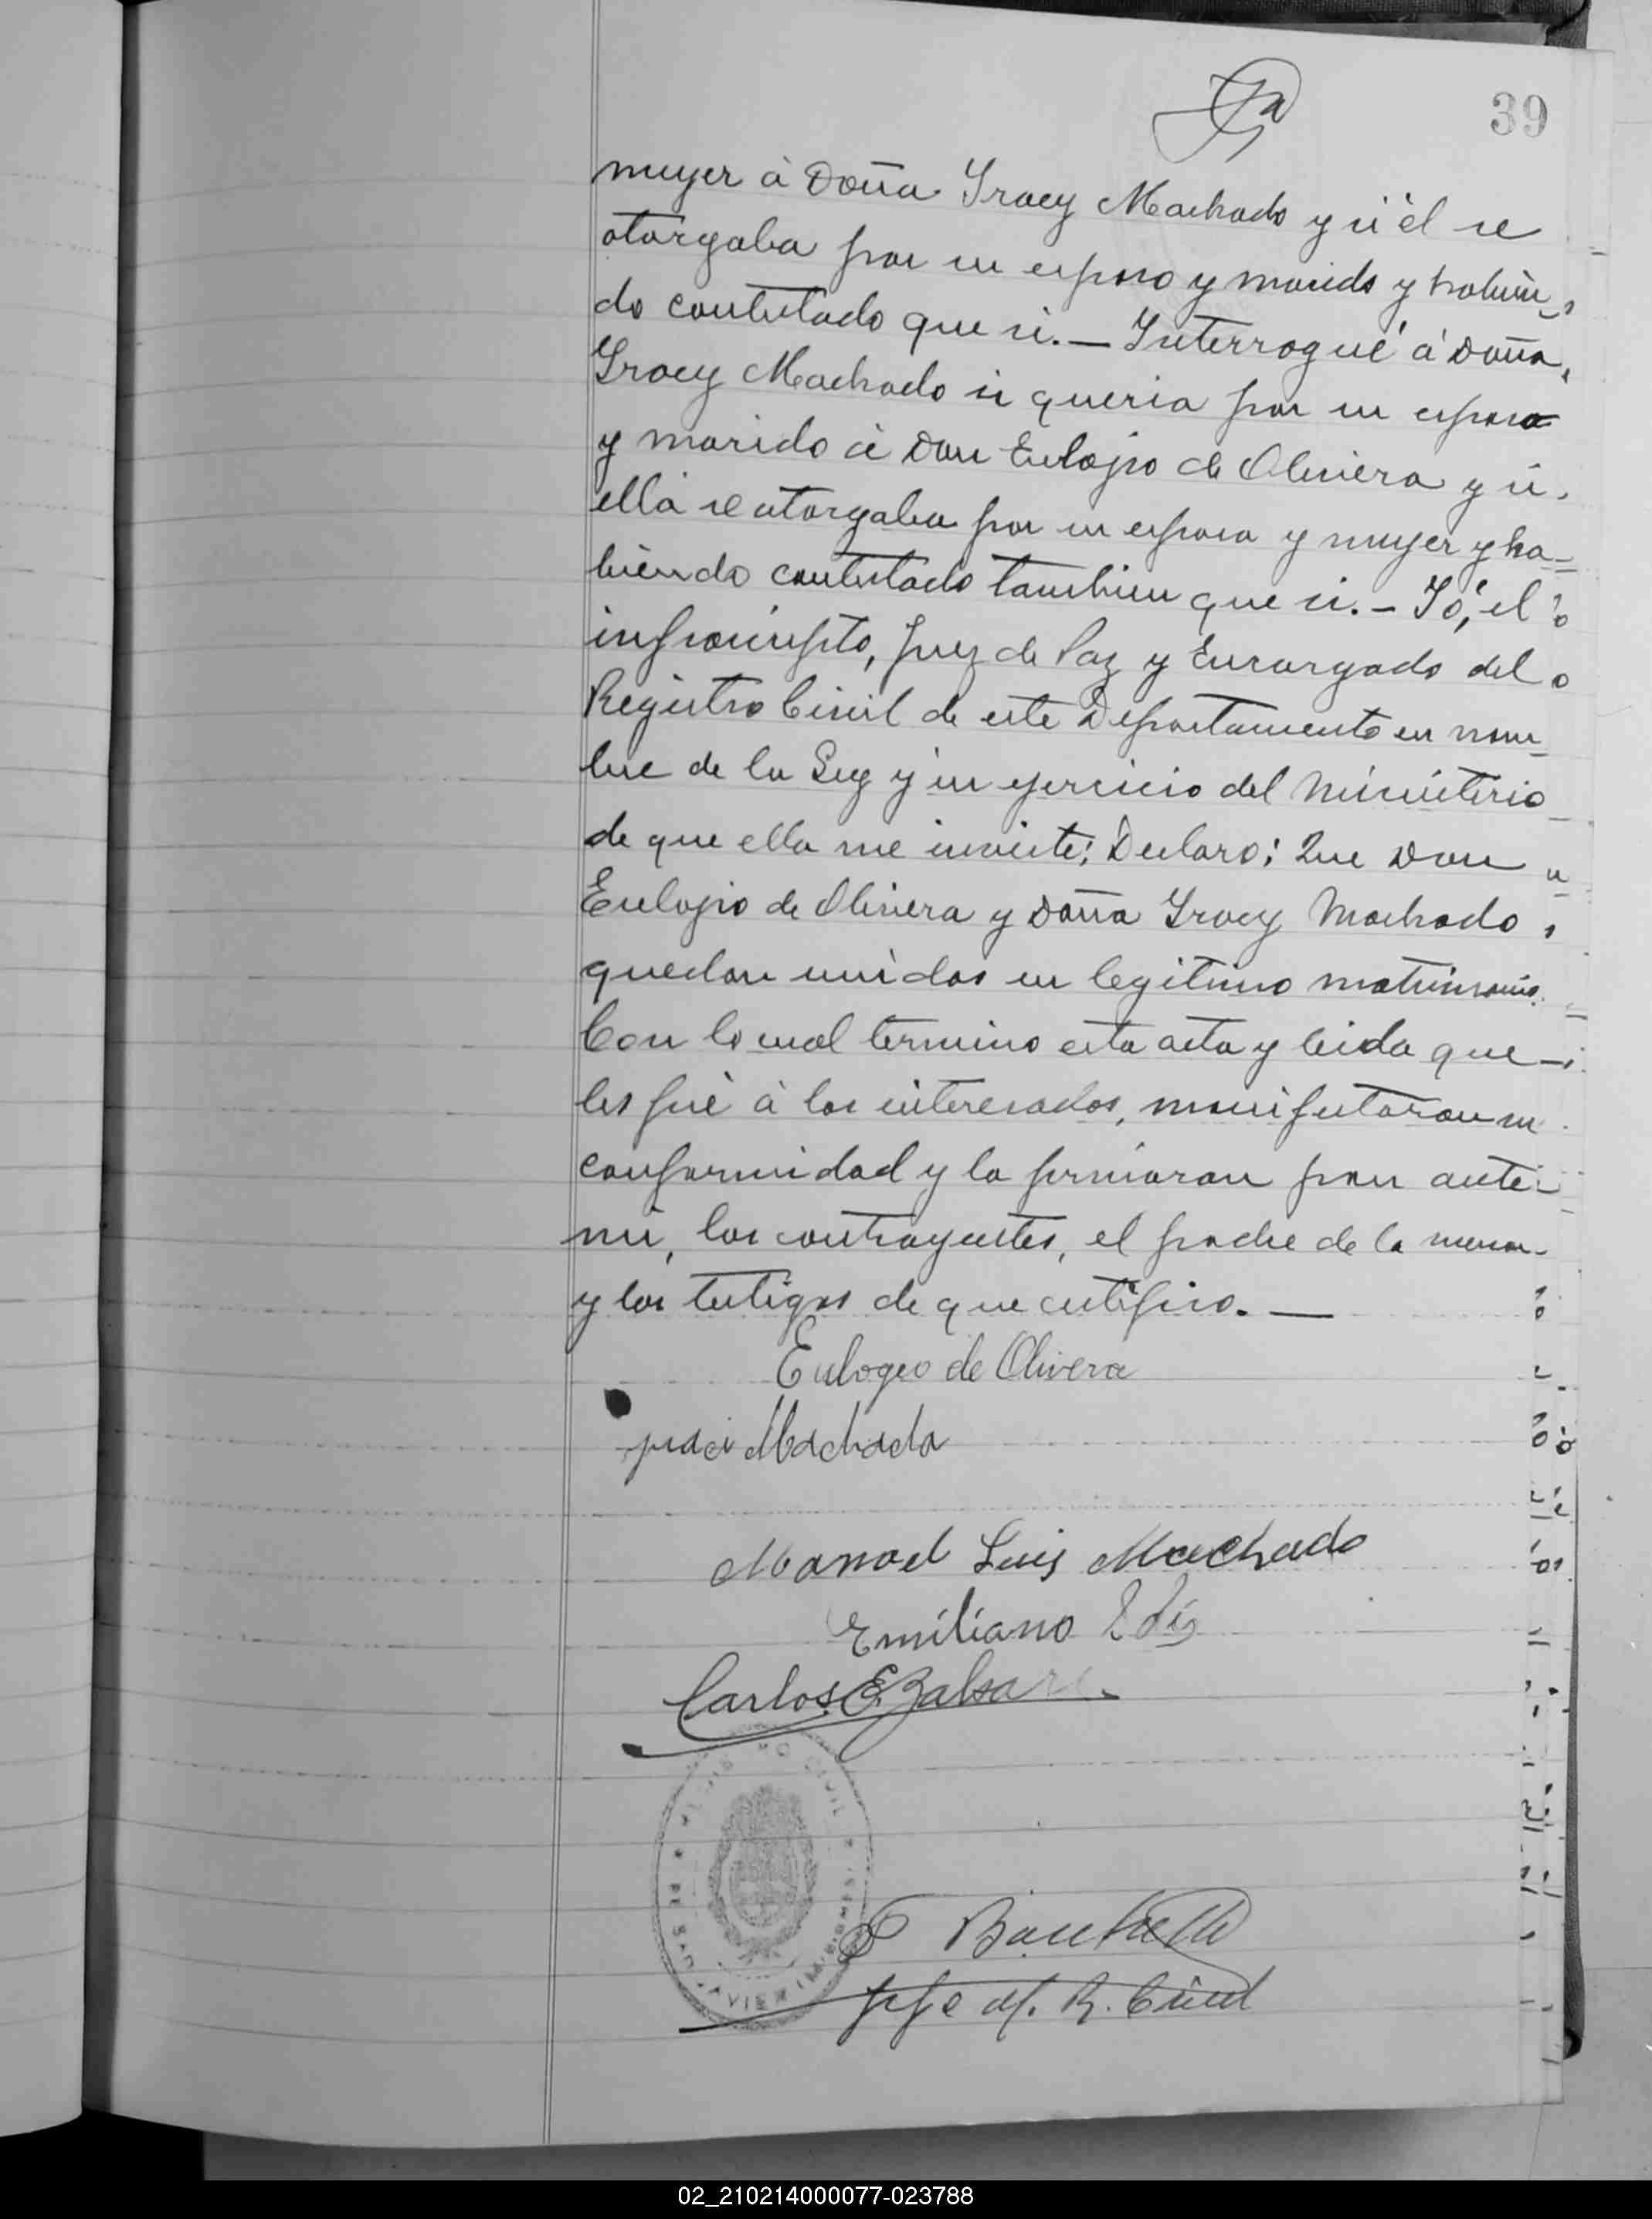 39
muger à Doña Iracy Machado y si él se
otorgaba por su esposo y marido y habien
do contestado que si. — Interrogué á Doña
Iracy Machado si queria por su esposo
y marido á Don Eulojio de Olivera y si
ella se otorgaba por su esposa y muger y ha=
biendo contestado tambien que si. — Yó, el
infrascripto, Juez de Paz y Encargado del
Registro Civil de este Departamento en nom
bre de la Ley y en ejercicio del Ministerio
de que ella me inviste; Declaro: Que Don
Eulojio de Olivera y Doña Iracy Machado
quedan unidos en legitimo matrimonio.
Con lo cual termino esta acta y leida que
les fué à los interesados, manifestaron su
conformidad y la firmaron por ante
mi, los contrayentes, el padre de la menor
y los testigos de que certifico. —
Eulogeo de Olivera
Machado
Manoel Luis Machado
Emiliano
Carlos E.
R. Civil
02_210214000077-023788